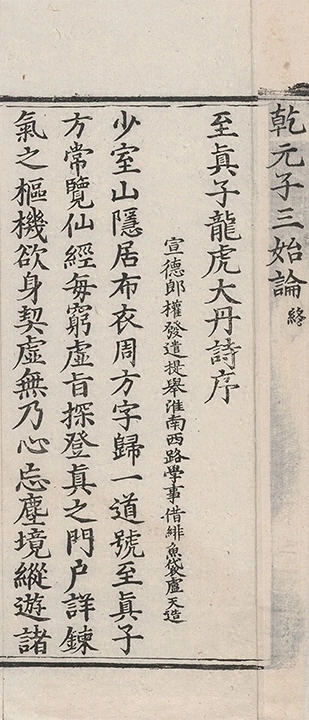 乾元子三始論終
至眞子龍虎大丹詩序
宣德郎權發遣提舉淮南西路學事借緋魚袋盧天造
少室山隱居布衣周方字歸一道號至眞子
方常覽仙經每窮虛旨探登真之門户詳鍊
氣之樞機欲身契虛無乃心忘塵境縱遊諸